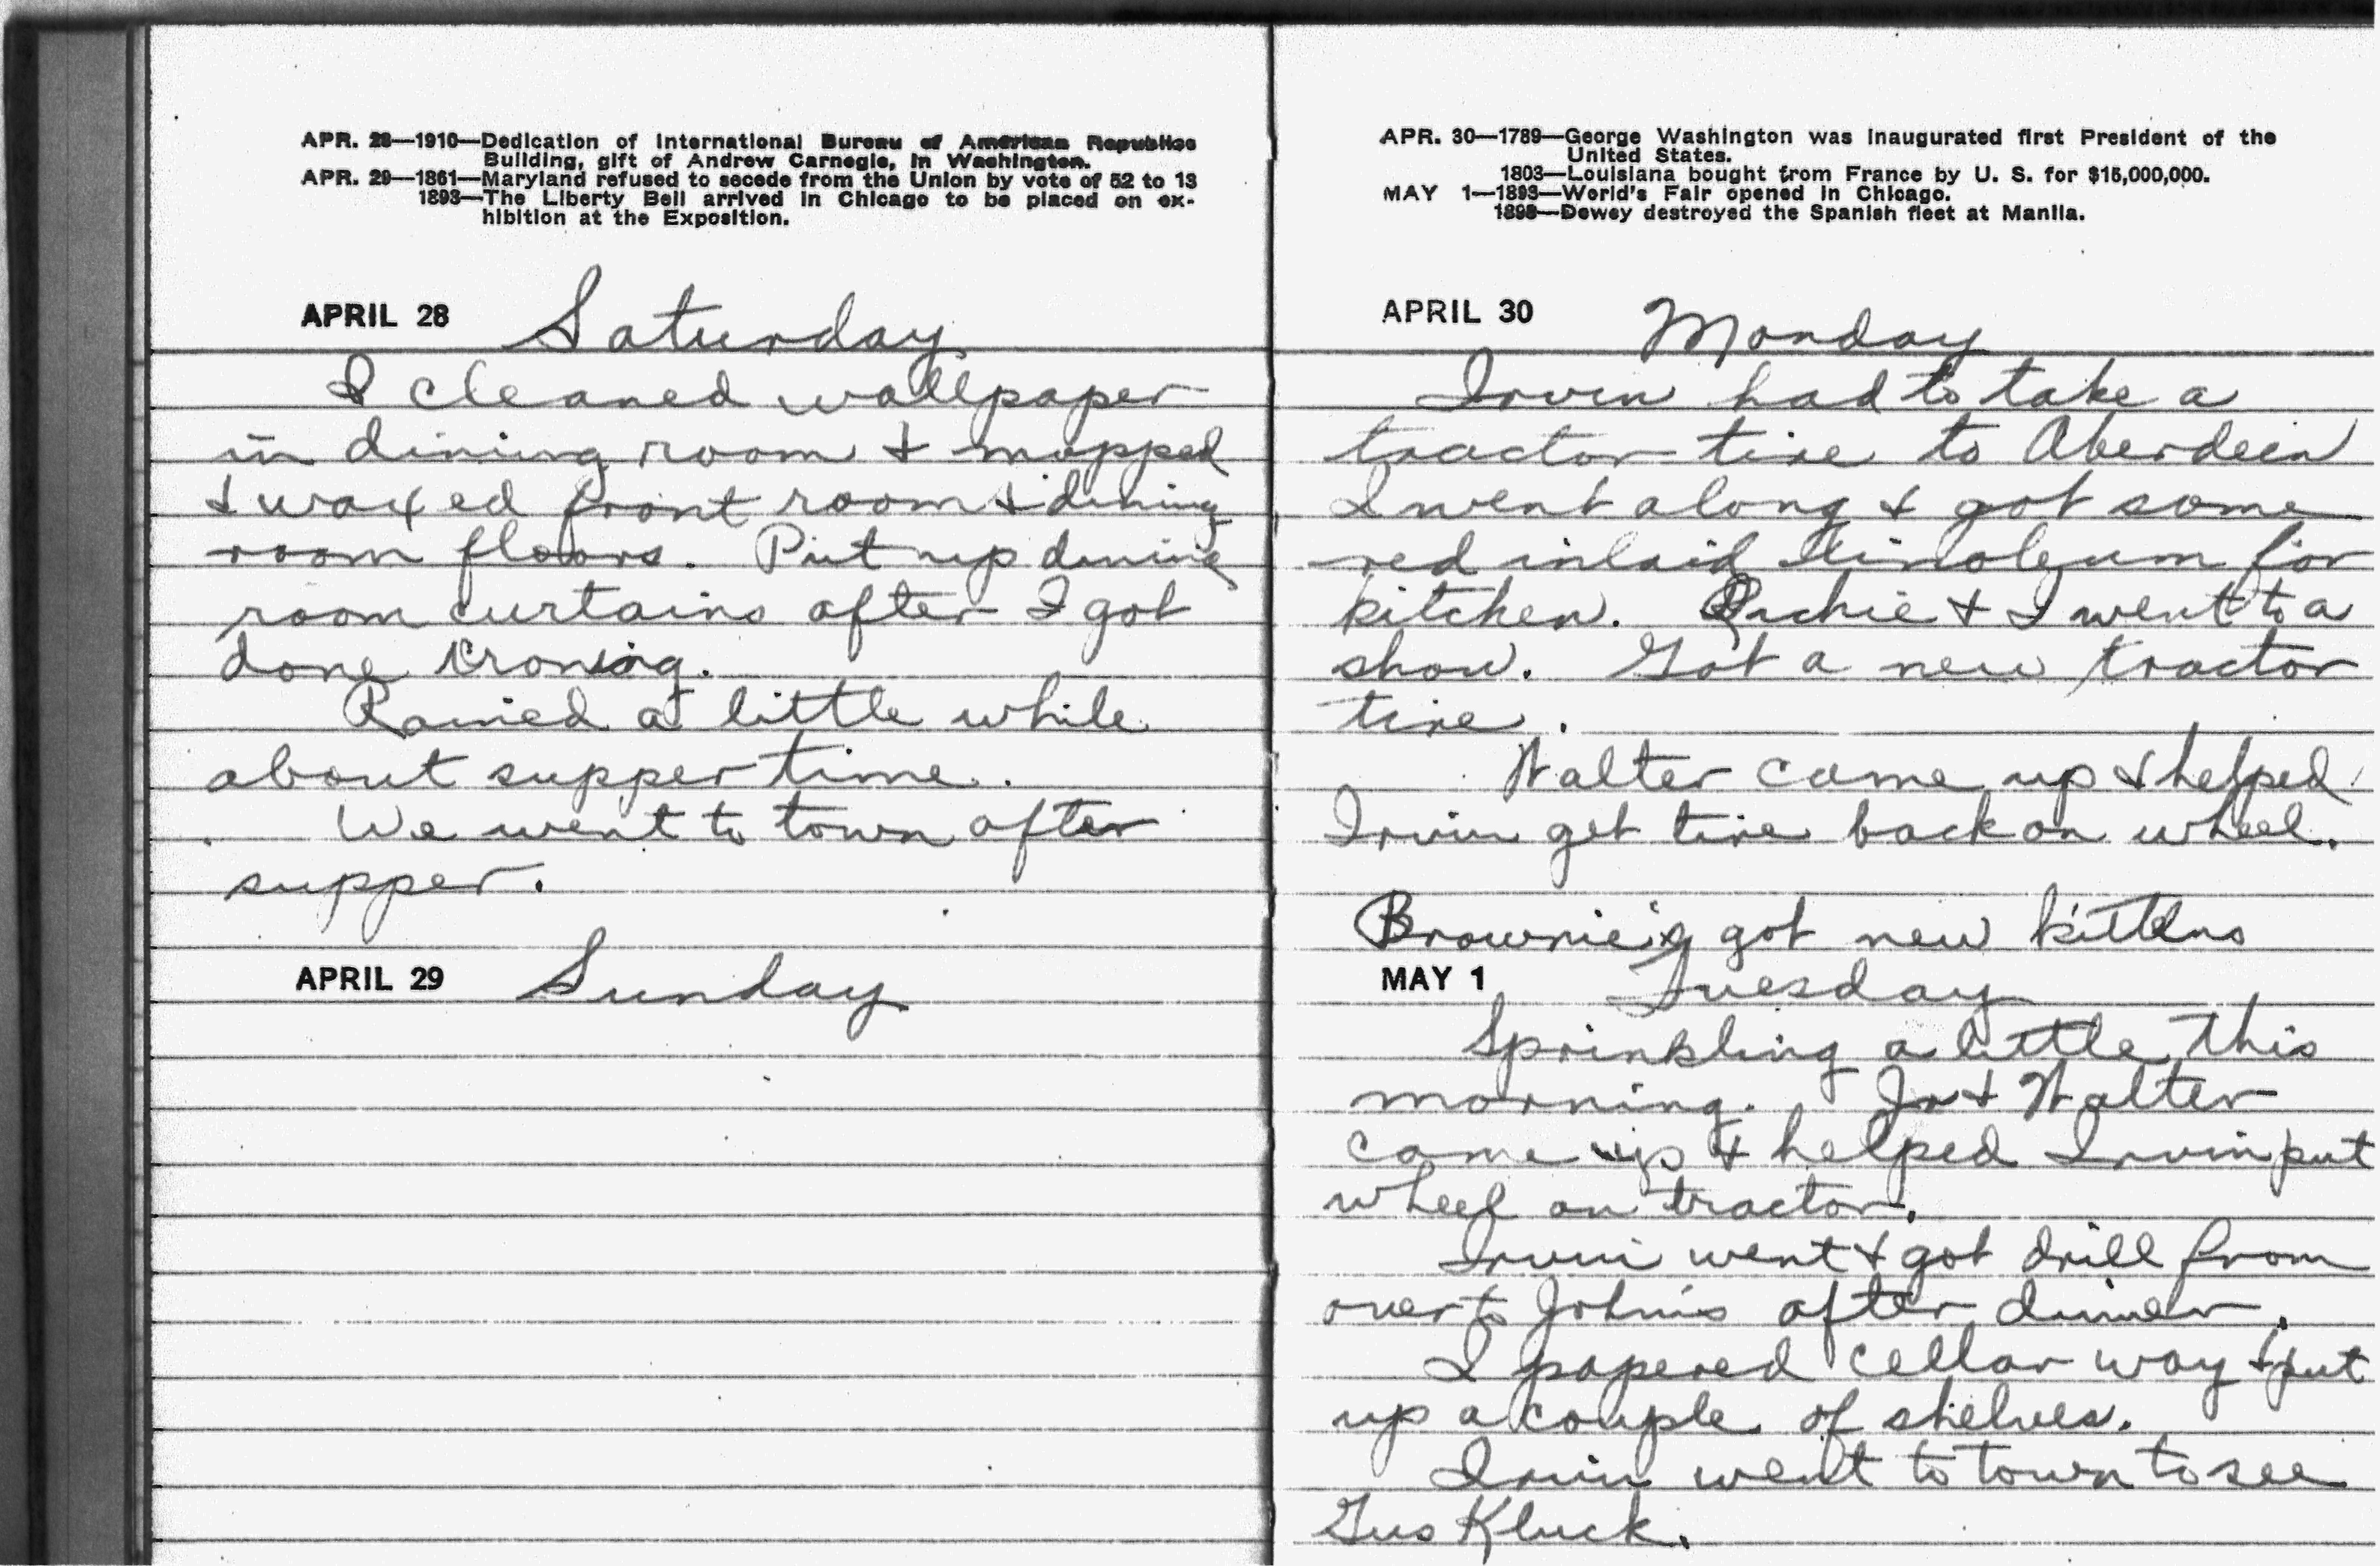 APR. 28—1910—Dedication of International Bureau of American Republics
Building, gift of Andrew Carnegie, in Washington.
APR. 29—1861—Maryland refused to secede from the Union by vote of 52 to 13
1893—The Liberty Bell arrived in Chicago to be placed on ex-
hibition at the Exposition.
APRIL 28 Saturday
I cleaned wallpaper
in dining room & mopped
& waxed front room & dining
room floors. Put up dining
room curtains after I got
done ironing.
Rained a little while
about supper time.
We went to town after
supper.
APRIL 29 Sunday
APR. 30—1789—George Washington was inaugurated first President of the
United States.
1803—Louisiana bought from France by U. S. for $15,000,000.
MAY 1—1893—World's Fair opened in Chicago.
1898—Dewey destroyed the Spanish fleet at Manila.
APRIL 30 Monday
Irvin had to take a
tractor tire to Aberdeen
I went along & got some
red inlaid linoleum for
kitchen. Archie & I went to a
show. Got a new tractor
tire.
Walter came up & helped
Irvin get tire back on wheel.
Brownie's got new kittens
MAY 1 Tuesday
Sprinkling a little this
morning. Jr & Walter
came up & helped Irvin put
wheel on tractor.
Irvin went & got drill from
over to John's after dinner.
I papered cellar way & put
up a couple of shelves.
Irvin went to town to see
Gus Kluck.